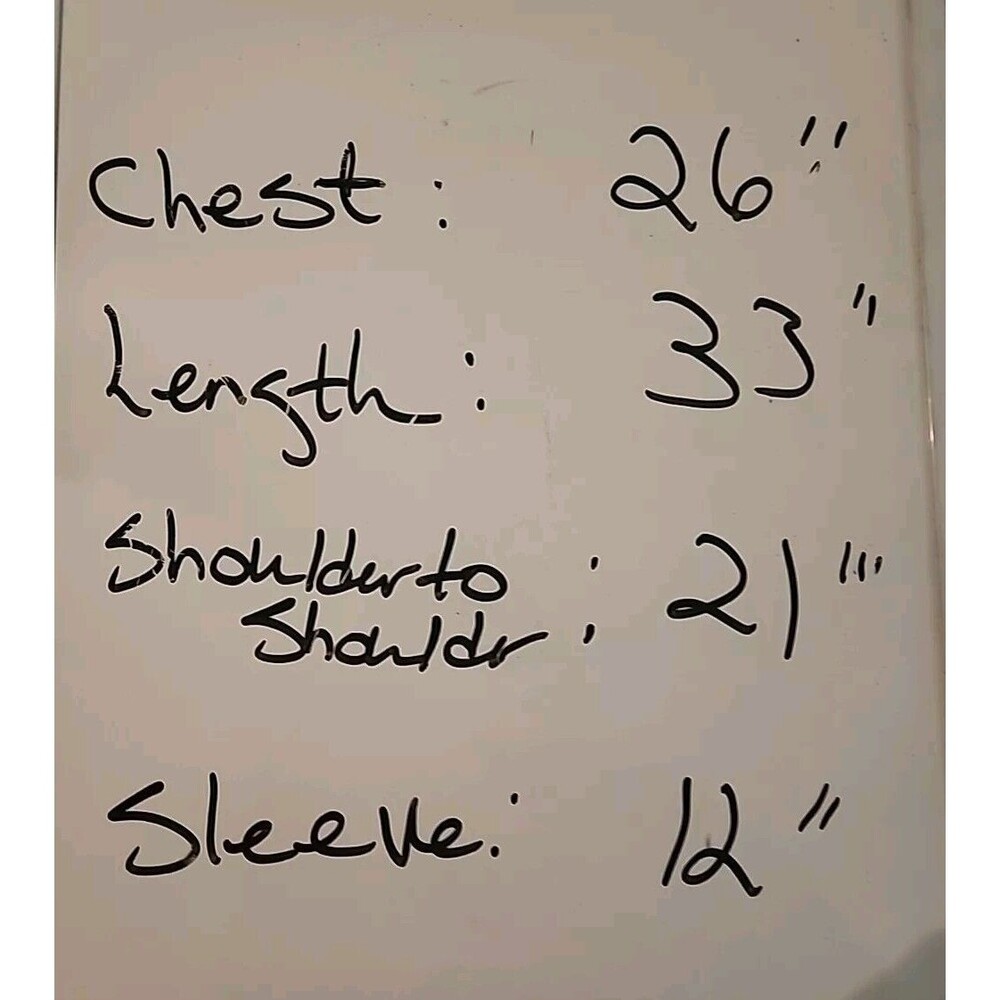 Chest: 26"
Length: 33"
Shoulder to
Shouldr : 21"'
Sleeve: 12"